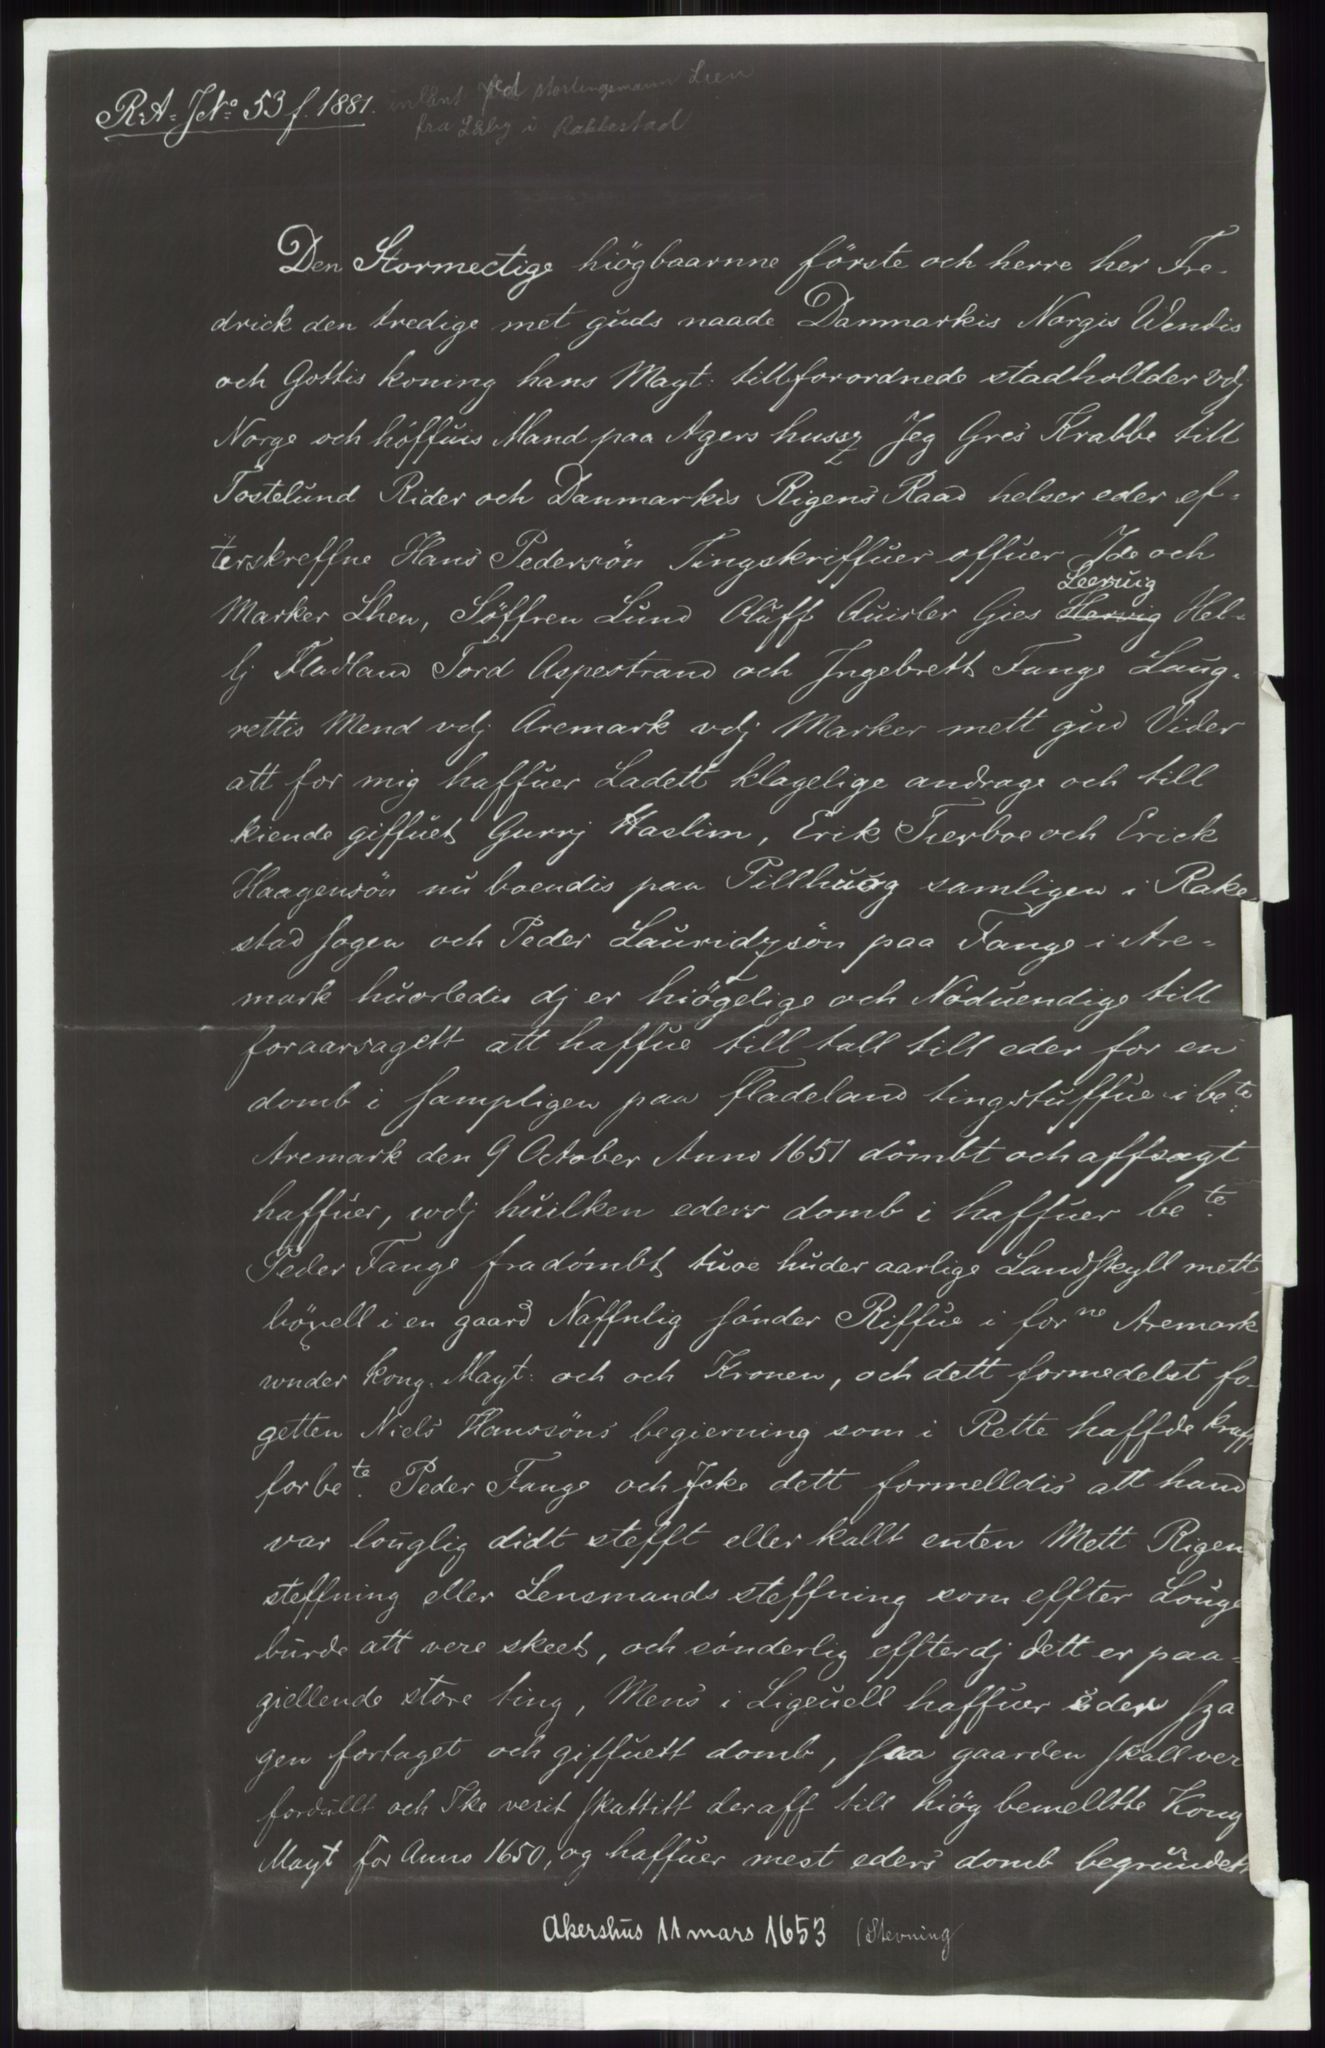 R.A. J.No 53 f. 1881. inlånt ved stortingsmann Lien
fra Læby i Rakkestad
Den Stormectige hiögbaarnne förste och herre her Fre-
drick den tredige met guds naade Danmarkis Norgis Wendis
och Gottis koning hans Mayt: tillforordnede stadhollder vdj
Norge och höffuis Mand paa Agers hussz Jeg Gres Krabbe till
Tostelund Rider och Danmarkis Rigens Raad helser eder ef-
terskreffne Hans Pedersön Tingskriffuer offuer Ide och
Leeruig
Marker Lhen, Söffren Lund Oluff Quisler Gies Herwig Hel-
lj Fladland Tord Aspestrand och Jngebrett Fange Laug-
rettis Mend vdj Aremark vdj Marker mett gud Vider
att for mig haffuer Ladett klagelige andrage och till
kiende giffuet Gurrj Haslim, Erik Tierboe och Erick
Haagensön nu boendis paa Pillhuog samligen i Rake
stad sogen och Peder Lauridzsön paa Fange i Are-
mark huorledis dj er hiögelige och Nöduendige till
foraarsagett att haffue till tall till eder for en
domb i sampligen paa Fladeland tingstuffue i bete
Aremark den 9 October Anno 1651 dömbt och affsagt
haffuer, wdj huilken eders domb i haffuer bete
Peder Fange fradömbt tuoe huder aarlige Landskyll mett
böxell i en gaard Naffnlig sönder Riffue i forne Aremark
wnder kong. Mayt: och och Kronen, och dett formedelst fo-
getten Niels Hanssöns begierning som i Rette haffde kraff
for bete Peder Fange och Jcke dett formelldis att hand
var louglig didt stefft eller kallt enten Mett Rigen
steffning eller Lensmands steffning som effter Louge
burde att vere skeet, och sönderlig effterdj dett er paa-
giellende store ting, Mens i Ligeuell haffuer i den sza
gen fortaget och giffuett domb, saa gaarden skall ver
fordullt och Ike verit skattitt deraff till hiög bemelltte Kong
Mayt for Anno 1650, og haffuer mest eders domb begrundett
Akershus 11 mars 1653 (Stevning